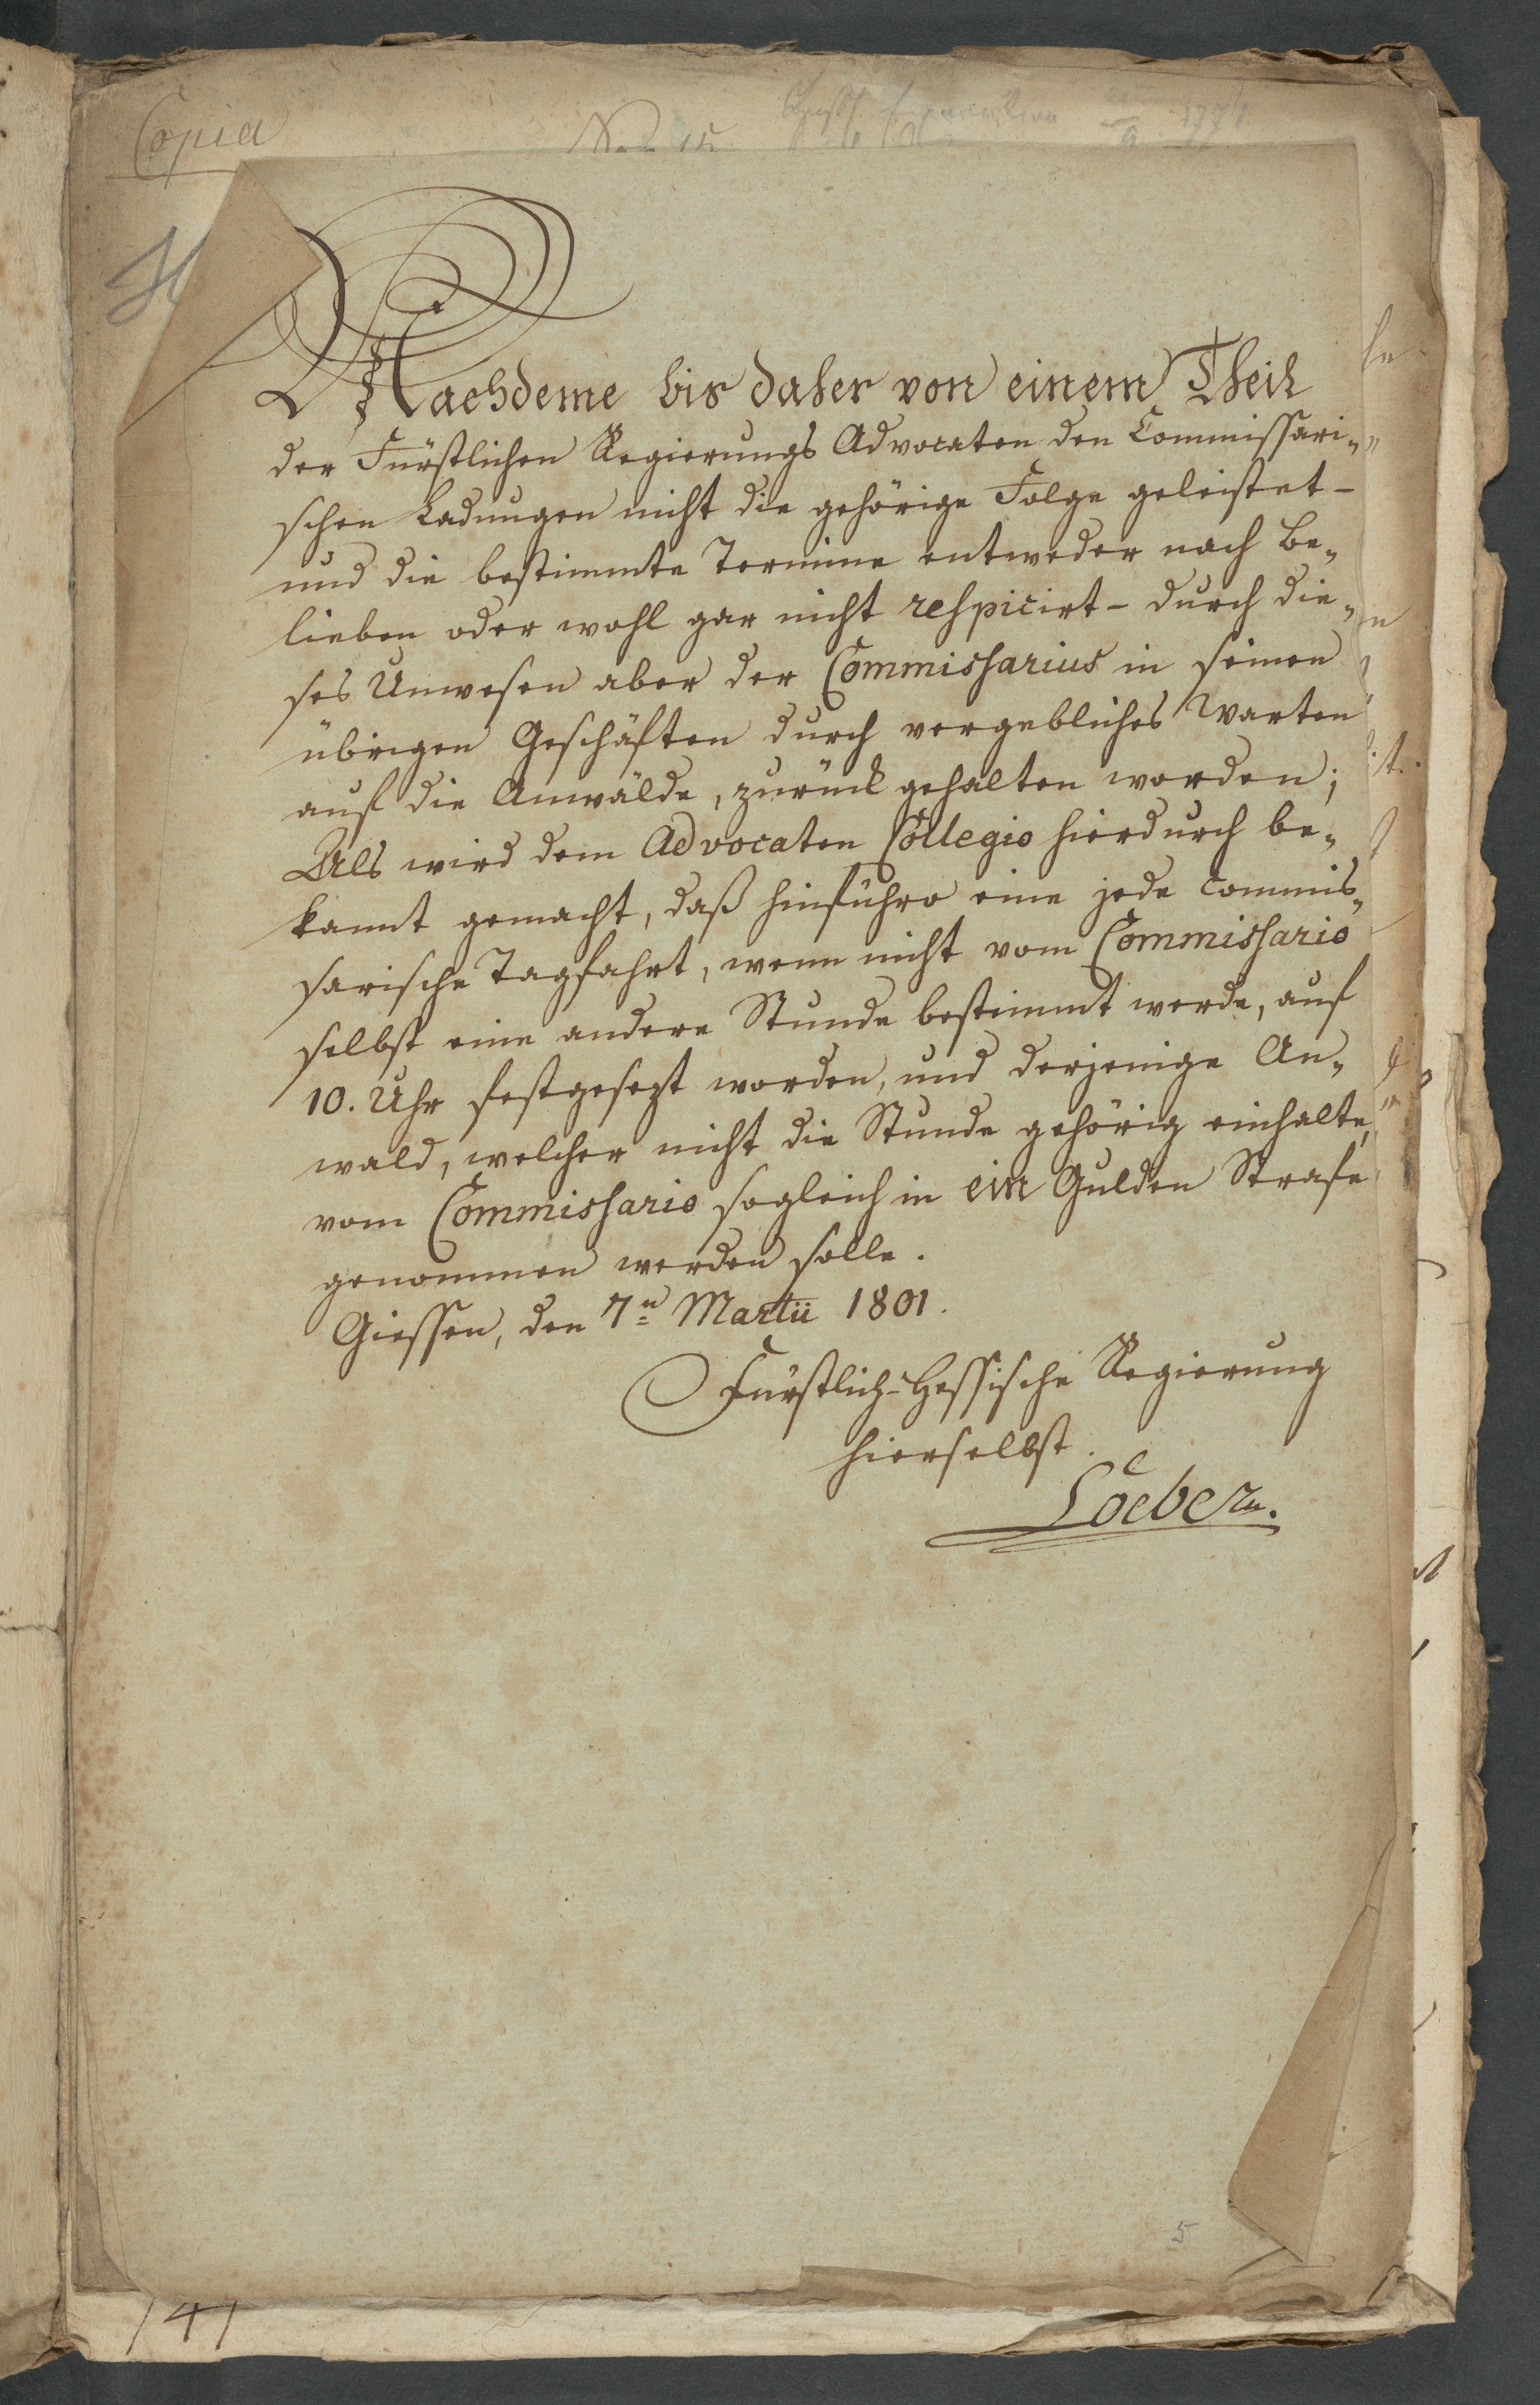 Copia
Nachdeme bis daher von einem Theil
der Fürstlichen Regierungs Advocaten den Commissari-
schen Ladungen nicht die gehörige Folge geleistet -
und die bestimmte Termine entweder nach Be-
lieben oder wohl gar nicht respicirt - durch die-
ses Unwesen aber der Commissarius in seinen
übrigen Geschäften durch vergebliches Warten
auf die Anwälde, zurück gehalten worden;
Als wird dem Advocaten Collegio hierdurch be-
kannt gemacht, daß hinführo eine jede Commis-
sarische Tagfahrt, wenn nicht vom Commissario
selbst eine andere Stunde bestimmt werde, auf
10. Uhr festgesezt worden, und derjenige An-
wald, welcher nicht die Stunde gehörig einhalte,
vom Commissario sogleich in ein Gulden Strafe
genommen werden solle.
Giessen, den 7n Martii 1801.
Fürstlich-Hessische Regierung
hierselbst.
Loeber.
5
141